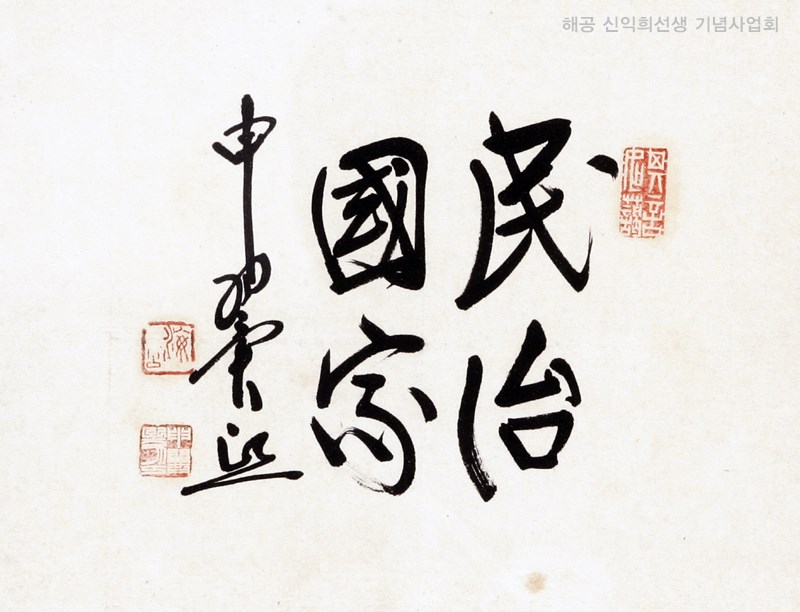 해공 신익희선생 기념사업회
民治
國家
申翼熙